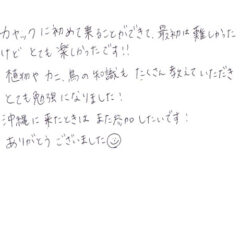 カヤックに初めて乗ることができて、最初は難しかった
けど とても 楽しかったです!!
植物や カニ、鳥の知識も たくさん 教えていただき
とても 勉強に なりました!
沖縄に 来たときは また 参加 したいです!
ありがとう ございました☺